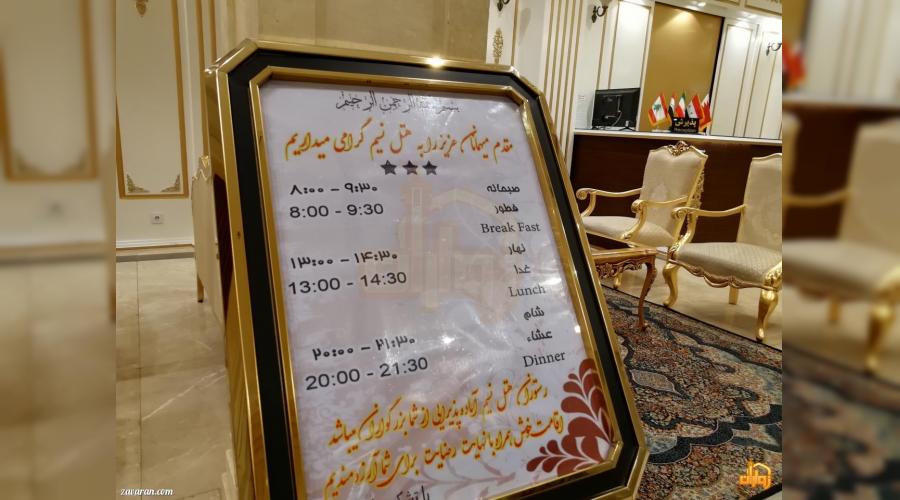 بسم الله الرحمن الرحیم
مقدم میهمانان عزیز را به هتل نسیم گرامی میداریم
صبحانه ۸:۰۰ - ۹:۳۰
فطور 8:00 - 9:30
Break Fast
نهار ۱۳:۰۰ - ۱۴:۳۰
غدا 13:00 - 14:30
Lunch
شام
عشاء ۲۰:۰۰ - ۲۱:۳۰
Dinner 20:00 - 21:30
رستوران هتل نسیم آماده پذیرایی از شما بزرگواران میباشد
اقامت خوش همراه با نهایت رضایت برای شما آرزومندیم
با تشکر
پذیرش
zavaran.com
زواران